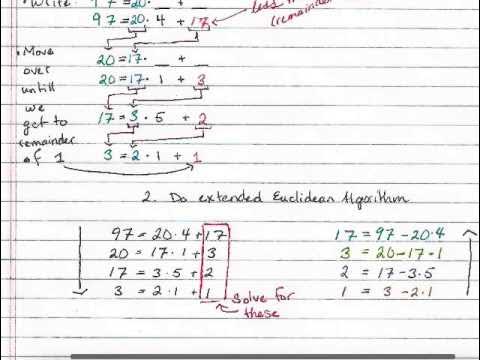 Write 97=20·_ +_
97=20·4 + 17
(remainder)
• Move over untill we get to remainder of 1
20=17·_ + _
20=17·1 + 3
17=3·5 + 2
3=2·1 + 1
2. Do extended Euclidean Algorithm
97=20·4+17
20=17·1+3
17=3·5+2
3=2·1+1
Solve for these
17=97-20·4
3=20-17·1
2=17-3·5
1=3-2·1